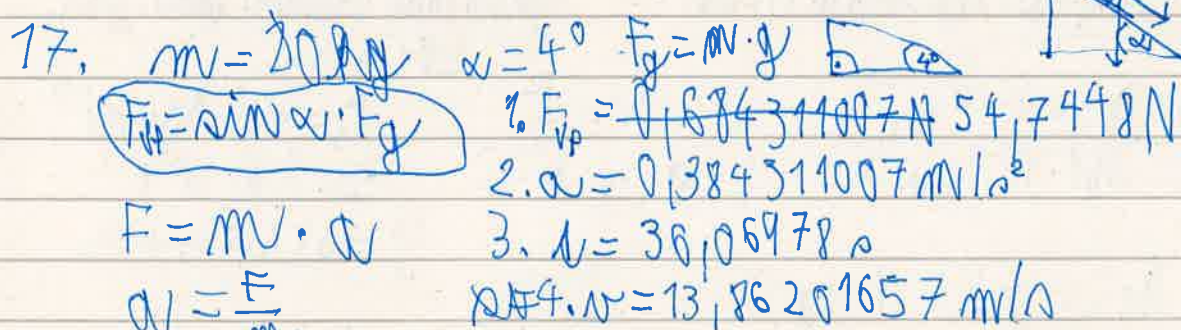 17. m = 80 kg α = 4° Fg = m · g 4° α
Fvp = sin α · Fg 1. Fvp = ~~0,684311007N~~ 54,7448N
2. a = 0,384311007 m/s²
F = m · a 3. t = 36,06978 s
a = F/m 4. v = 13,86201657 m/s